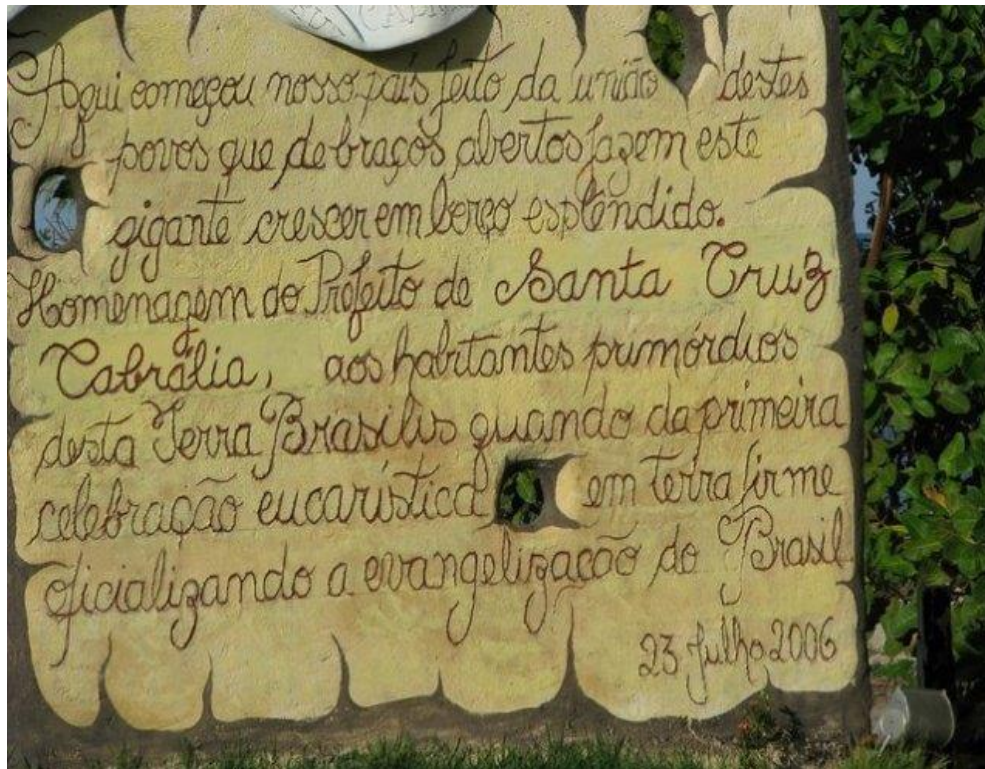 Aqui começou nosso país feito da união destes
povos que de braços abertos fazem este
gigante crescer em berço esplêndido.
Homenagem do Prefeito de Santa Cruz
Cabrália, aos habitantes primórdios
desta Terra Brasilis quando da primeira
celebração eucarística em terra firme
oficializando a evangelização do Brasil
23 Julho 2006